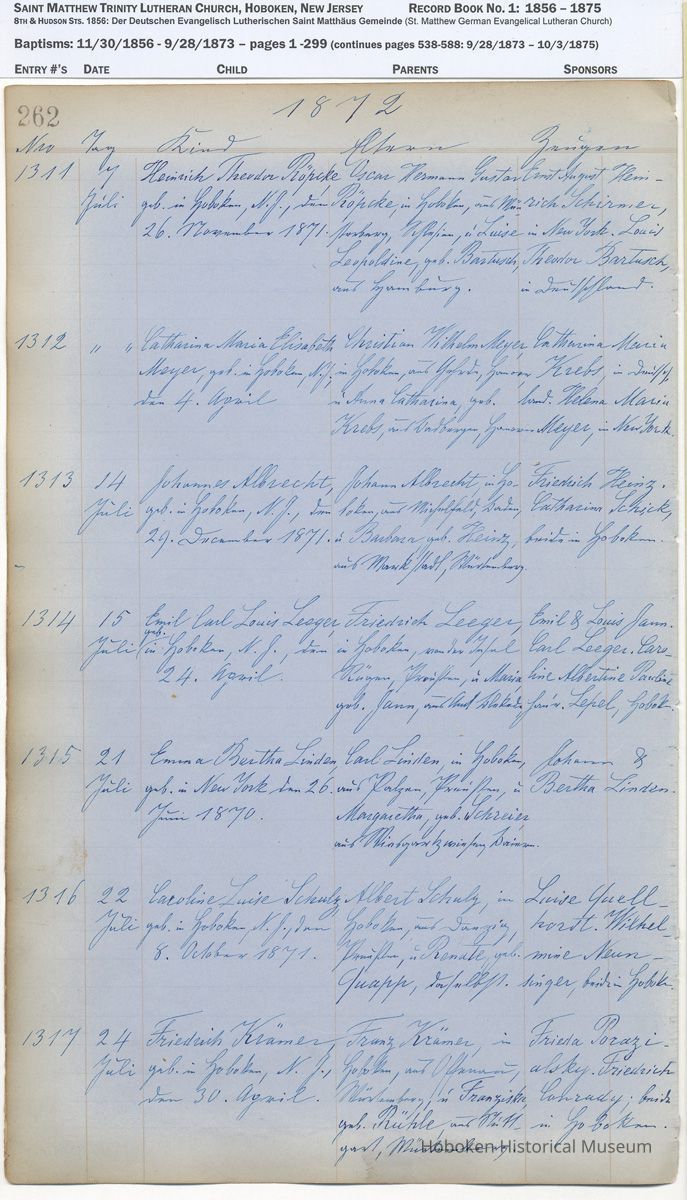 SAINT MATTHEW TRINITY LUTHERAN CHURCH, HOBOKEN, NEW JERSEY RECORD BOOK NO. 1: 1856 – 1875
8TH & HUDSON STS. 1856: Der Deutschen Evangelisch Lutherischen Saint Matthäus Gemeinde (St. Matthew German Evangelical Lutheran Church)
Baptisms: 11/30/1856 - 9/28/1873 – pages 1 -299 (continues pages 538-588: 9/28/1873 – 10/3/1875)
ENTRY #'S DATE CHILD PARENTS SPONSORS
262
1872
Nro Tag Kind Eltern Zeugen
1311 7 Heinrich Theodor Röpcke Oscar Hermann Gustav Ernst August Hein-
Juli geb. in Hoboken, N. J., den Röpcke, in Hoboken, aus rich Schirmer,
26. November 1871. Schlesien, u Luise in New York. Louis
Leopoldine, geb. Bartusch, Theodor Bartusch,
aus Hamburg. in Deutschland.
1312 " " Catharina Maria Elisabeth Christian Wilhelm Meyer, Catharina Maria
Meyer, geb. in Hoboken, N. J., in Hoboken, aus Krebs in Deutsch-
den 4. April u Anna Catharina, geb. land. Helena Maria
Krebs, aus Meyer, in New York.
1313 14 Johannes Albrecht, Johann Albrecht in Ho- Friedrich Heinz.
Juli geb. in Hoboken, N. J., den boken, aus Michelfeld, Baden, Catharina Schick,
29. December 1871. u Barbara geb. Heinz, beide in Hoboken.
aus
1314 15 Emil Carl Louis Leeger, Friedrich Leeger, Emil & Louis Jann.
Juli geb. in Hoboken, N. J., den in Hoboken, von der Insel Carl Leeger. Caro-
24. April. Rügen, Preußen, u Maria line Albertine Pauline
geb. Jann, aus Lepel, Hobok.
1315 21 Emma Bertha Linden, Carl Linden, in Hoboken, Johann &
Juli geb. in New York den 26. aus Preußen, u Bertha Linden.
Juni 1870. Margaretha, geb. Schreier
aus Baiern.
1316 22 Caroline Luise Schulz Albert Schulz, in Luise Quell-
Juli geb. in Hoboken, N. J., den Hoboken, aus Danzig, horst. Wilhel-
8. October 1871. Preußen, u Renate, geb. mine Neun-
Quapp, daselbst. singer, beide in Hobok.
1317 24 Friedrich Krämer, Franz Krämer, in Frieda Porazi-
Juli geb. in Hoboken, N. J., Hoboken, aus alsky. Friedrich
den 30. April. u Franziska, Conrady, beide
geb. Rühle, aus Stutt- in Hoboken.
gart,
Hoboken Historical Museum